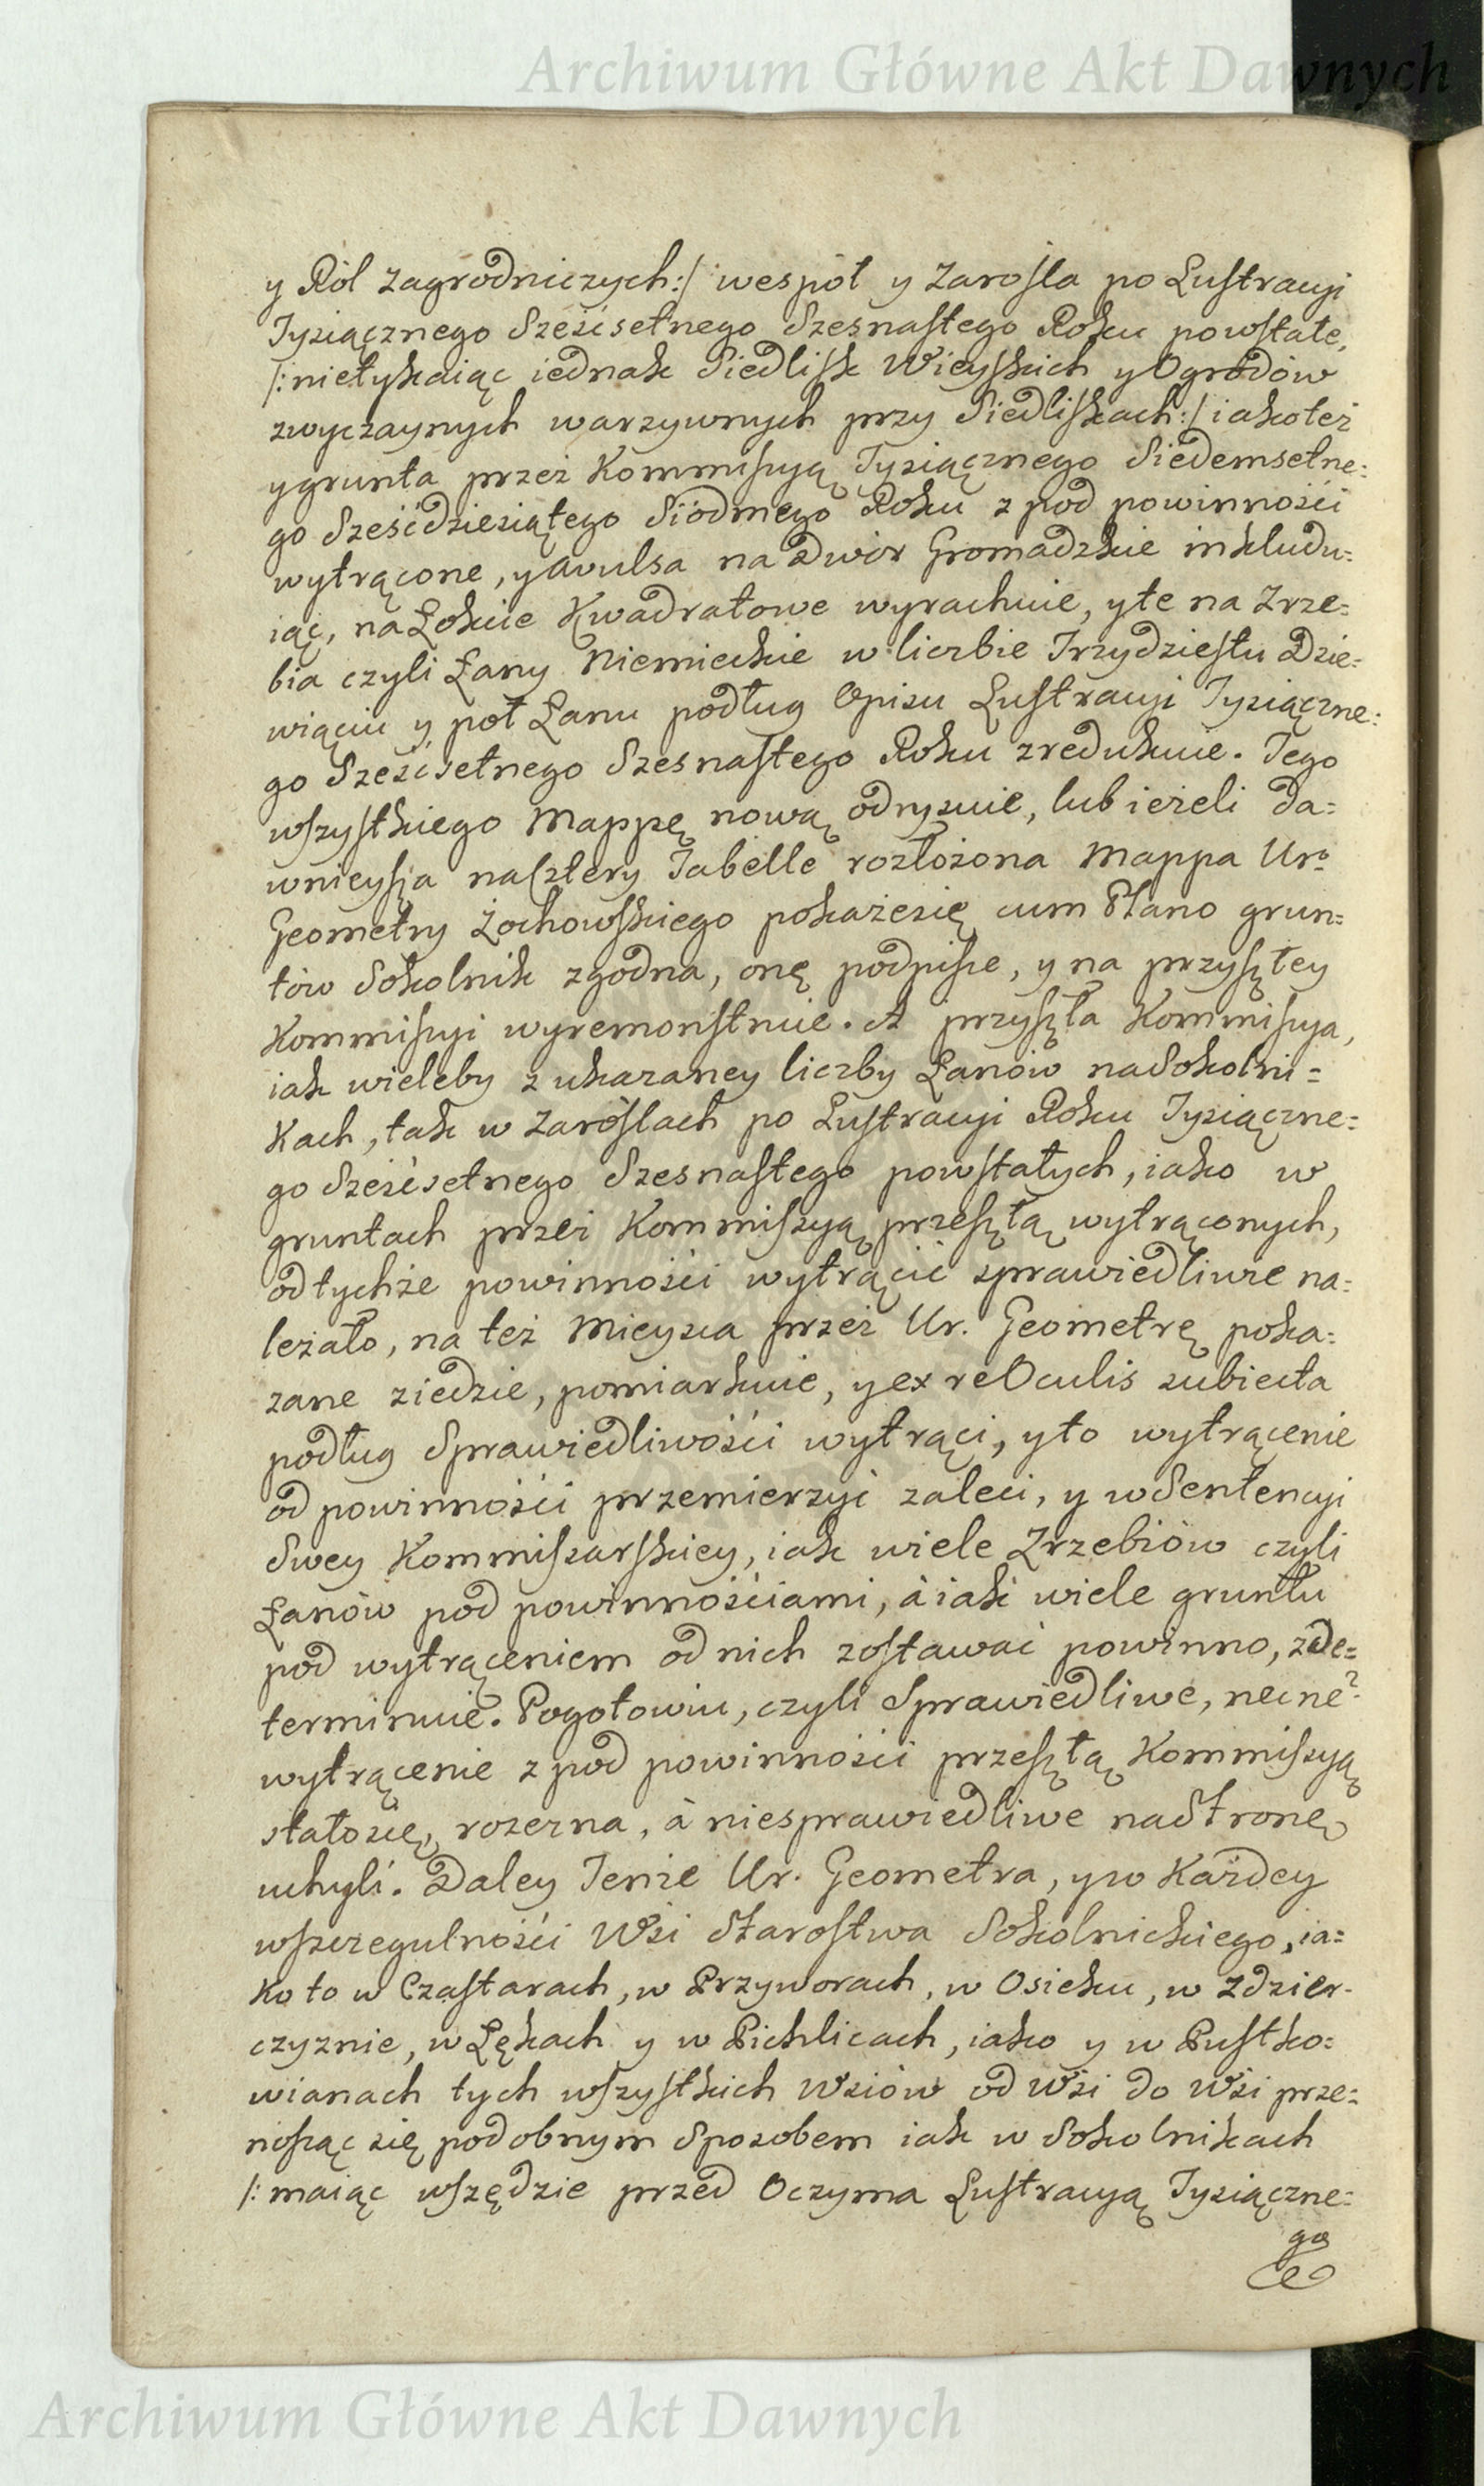 Archiwum Główne Akt Dawnych
y Ról Zagrodniczych:/ wespół y Zarosla po Lustracyi
Tysiącznego Sześćsetnego Szesnastego Roku powstałe,
/:nietykaiąc iednak Siedlisk Wieyskich y Ogrodów
zwyczaynych warzywnych przy Siedliskach:/ iakoteż
y grunta przez Kommissyą Tysiącznego Siedemsetne=
go Sześćdziesiątego Siódmego Roku z pod powinności
wytrącone, y avulsa na Dwór Gromadzkie inkludu=
iąc, na Łokcie Kwadratowe wyrachuie, y te na Zrze=
bia czyli Łany Niemieckie w liczbie Trzydziestu Dzie=
wiąciu y poł Łanu podług Opisu Lustracyi Tysiączne=
go Sześćsetnego Szesnastego Roku zredukuie. Tego
wszystkiego Mappę nową odrysuie, lub ieżeli da=
wnieysza na cztery Tabelle rozłożona Mappa Uro
Geometry Żochowskiego pokaże się cum Plano grun=
tów Sokolnik zgodna, onę podpisze, y na przyszłey
Kommissyi wyremonstruie. A przyszła Kommissya,
iak wieleby z ukazaney liczby Łanów na Sokolni=
kach, tak w Zaroślach po Lustracyi Roku Tysiączne=
go Sześćsetnego Szesnastego powstałych, iako w
gruntach przez Kommissyą przeszłą wytrąconych,
od tychże powinności wytrącić sprawiedliwie na=
leżało, na też Mieysca przez Ur. Geometrę poka=
zane ziedzie, pomiarkuie, y ex re Oculis subiecta
podług Sprawiedliwości wytrąci, y to wytrącenie
od powinności przemierzyć zaleci, y w Sentencyi
Swey Kommissarskiey, iak wiele Zrzebiów czyli
Łanów pod powinnościami, à iak wiele gruntu
pod wytrąceniem od nich zostawać powinno, zde=
terminuie. Pogotowiu, czyli Sprawiedliwe, necne?
wytrącenie z pod powinności przeszłą Kommissyą
stało się, rozezna, à niesprawiedliwe na Stronę
uchyli. Daley Tenże Ur. Geometra, y w Każdey
wszczegulności Wsi Starostwa Sokolnickiego, ia=
ko to w Czastarach, w Przyworach, w Osieku, w Zdzier-
czyznie, w Łękach y w Pichlicach, iako y w Pustko=
wianach tych wszystkich Wsiów od Wsi do Wsi prze=
nosząc się podobnym Sposobem iak w Sokolnikach
/:maiąc wszędzie przed Oczyma Lustracyą Tysiączne=
go
Archiwum Główne Akt Dawnych